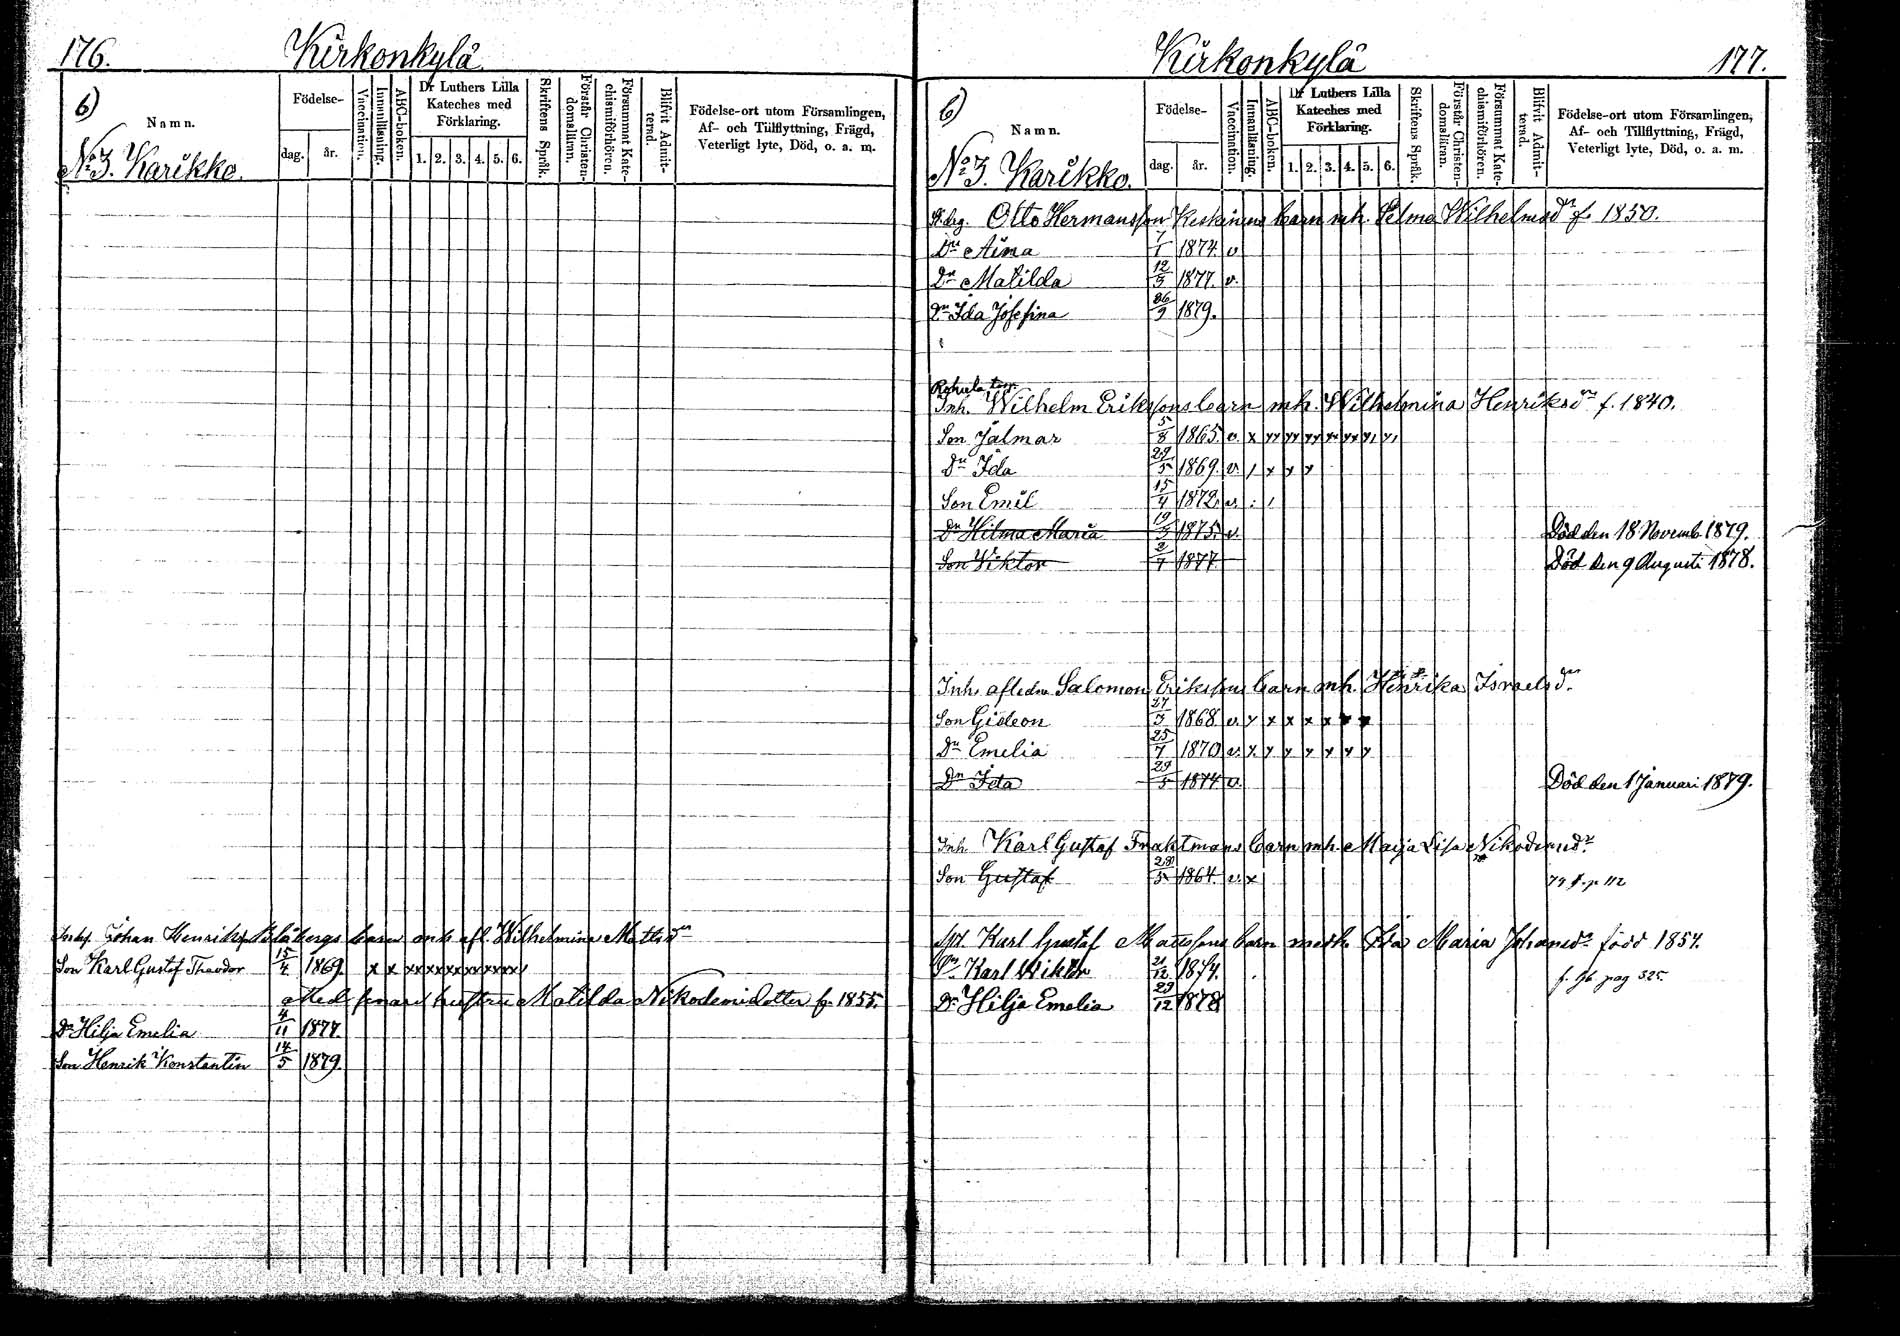 176. Kirkonkylä
6)
Namn.
No 3. Karikko.
Födelse-
dag. år.
Vaccination.
Innanläsning.
ABC-boken.
Dr Luthers Lilla Kateches med Förklaring.
1. 2. 3. 4. 5. 6.
Skriftens Språk.
Förstår Christendomsläran.
Försummat Katechismiförhören.
Blifvit Admitterad.
Födelse-ort utom Församlingen,
Af- och Tillflyttning, Frägd,
Veterligt lyte, Död, o. a. m.
Johan Henriks Blåbergs barn mh afl. Wilhelmina Mattsdr
Son Karl Gustaf Theodor 15/4 1869. x x xx xx xx xx xx xx
Med senare hustru Matilda Nikodemidotter f. 1855.
Dr Hilja Emelia 4/11 1877.
Son Henrik Konstantin 14/5 1879.
Kirkonkylä 177.
6)
Namn.
No 3. Karikko.
Födelse-
dag. år.
Vaccination.
Innanläsning.
ABC-boken.
Dr Luthers Lilla Kateches med Förklaring.
1. 2. 3. 4. 5. 6.
Skriftens Språk.
Förstår Christendomsläran.
Försummat Katechismiförhören.
Blifvit Admitterad.
Födelse-ort utom Församlingen,
Af- och Tillflyttning, Frägd,
Veterligt lyte, Död, o. a. m.
Otto Hermansson Keskinens barn mh. Selma Wilhelmsdr f. 1850.
Dr Aina 7/1 1874 v
Dr Matilda 12/3 1877. v.
Dr Ida Josefina 26/9 1879.
Inh. Wilhelm Erikssons barn mh. Wilhelmina Henriksdr f. 1840.
Son Jalmar 5/8 1865. v. x
Dr Ida 29/5 1869. v. / x x x
Son Emil 15/4 1872. v.
Dr Hilma Maria 19/3 1875. v. Död den 18 Novemb. 1879.
Son Wiktor 2/7 1877 Död den 9 Augusti 1878.
Inh. afledne Salomon Erikssons barn mh. Henrika Israelsdr
Son Gideon 27/3 1868 v. x x x x x x x
Dr Emelia 25/7 1870 v. x x x x x x x
Dr Ida 29/5 1874 v. Död den 1 Januari 1879.
Inh. Karl Gustaf Fraktmans barn mh. Maja Lisa Nikodemidr
Son Gustaf 28/5 1864. v. x 79 f. p 112
Karl Gustaf Matssons barn medh. Ida Maria Johansdr född 1854.
Karl Wiktor 21/12 1874. f. Gb pag 325.
Dr Hilja Emelia 29/12 1878